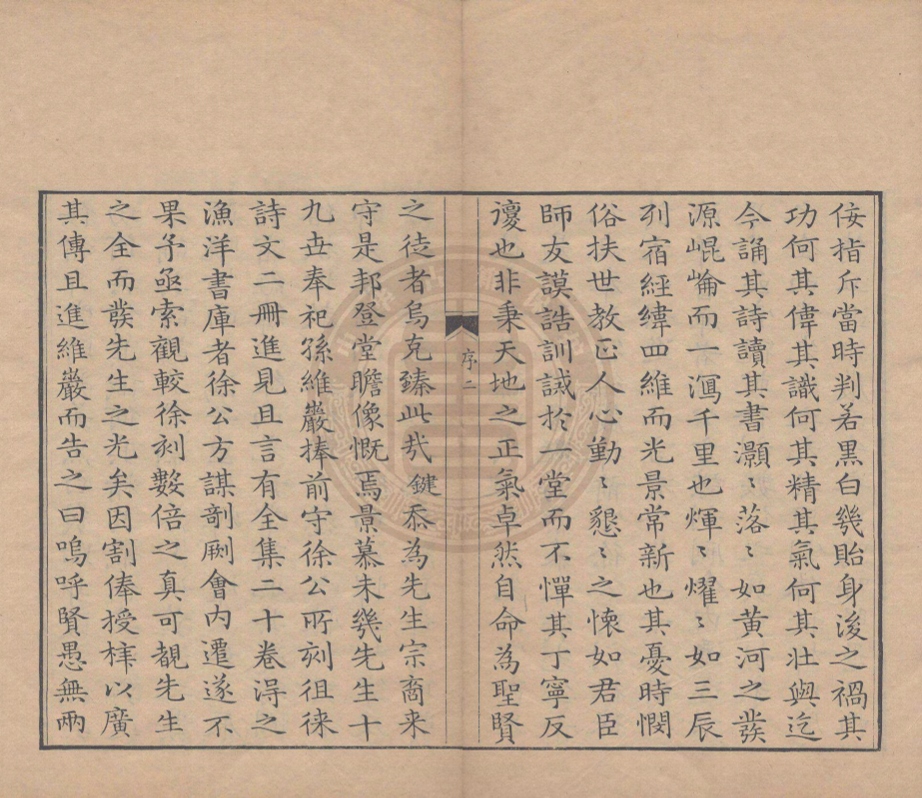 佞指斥當時判若黑白幾貽身後之禍其
功何其偉其識何其精其氣何其壯與迄
今誦其詩讀其書灝〻落〻如黄河之發
源崐崘而一瀉千里也煇〻燿〻如三辰
列宿經緯四維而光景常新也其憂時憫
俗扶世教正人心勤〻懇〻之懷如君臣
師友謨誥訓誡於一堂而不憚其丁寧反
𮞉也非秉天地之正氣卓然自命為聖賢
序二
之徒者烏克臻此㢤鍵忝為先生宗裔来
守是邦登堂瞻像慨焉景慕未㡬先生十
九世奉祀孫維巖捧前守徐公所刻徂徠
詩文二冊進見且言有全集二十卷淂之
漁洋書庫者徐公方謀剞劂會内遷遂不
果予亟索觀較徐刻數倍之真可覩先生
之全而發先生之光矣因割俸授梓以廣
其傳且進維巖而告之曰嗚呼賢愚無兩